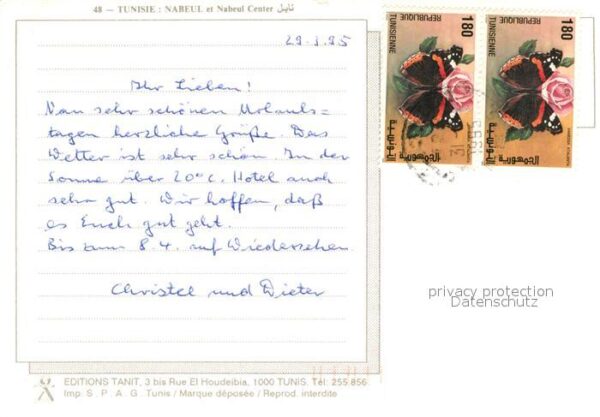 48 — TUNISIE : NABEUL et Nabeul Center نابل
29.3.95
Ihr Lieben!
Von sehr schönen Urlaubs=
tagen herzliche Grüße. Das
Wetter ist sehr schön. In der
Sonne über 20°C. Hotel auch
sehr gut. Wir hoffen, daß
es Euch gut geht.
Bis zum 8.4. auf Wiedersehen.
Christel und Dieter
REPUBLIQUE
TUNISIENNE
180
REPUBLIQUE
TUNISIENNE
180
privacy protection
Datenschutz
EDITIONS TANIT, 3 bis Rue El Houdeibia, 1000 TUNIS. Tél: 255 856
Imp. S . P . A . G . Tunis / Marque déposée / Reprod. interdite